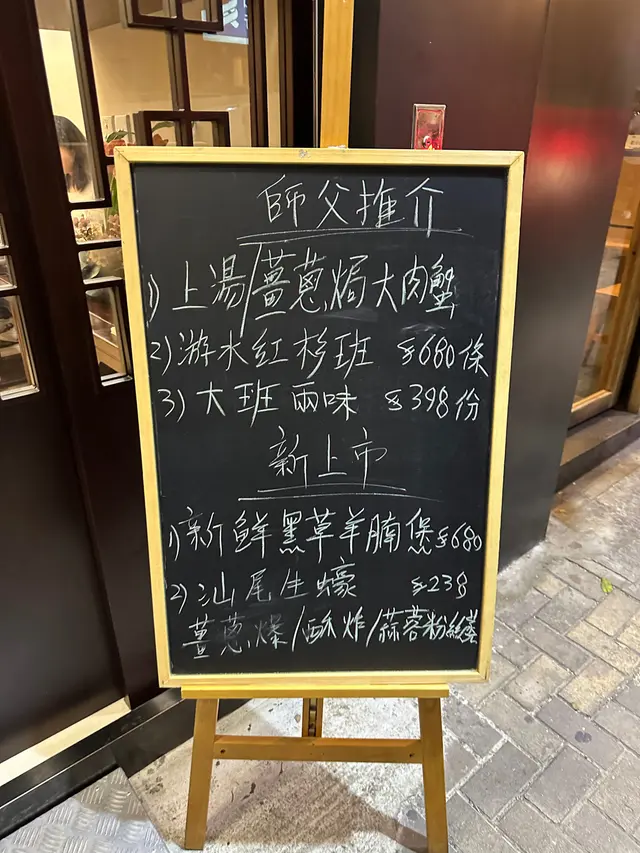 師父推介
1) 上湯/薑蔥焗大肉蟹
2) 游水紅杉班 $680條
3) 大班兩味 $398份
新上市
1) 新鮮黑草羊腩煲$680
2) 汕尾生蠔 $238
薑蔥爆/酥炸/蒜蓉粉絲蒸